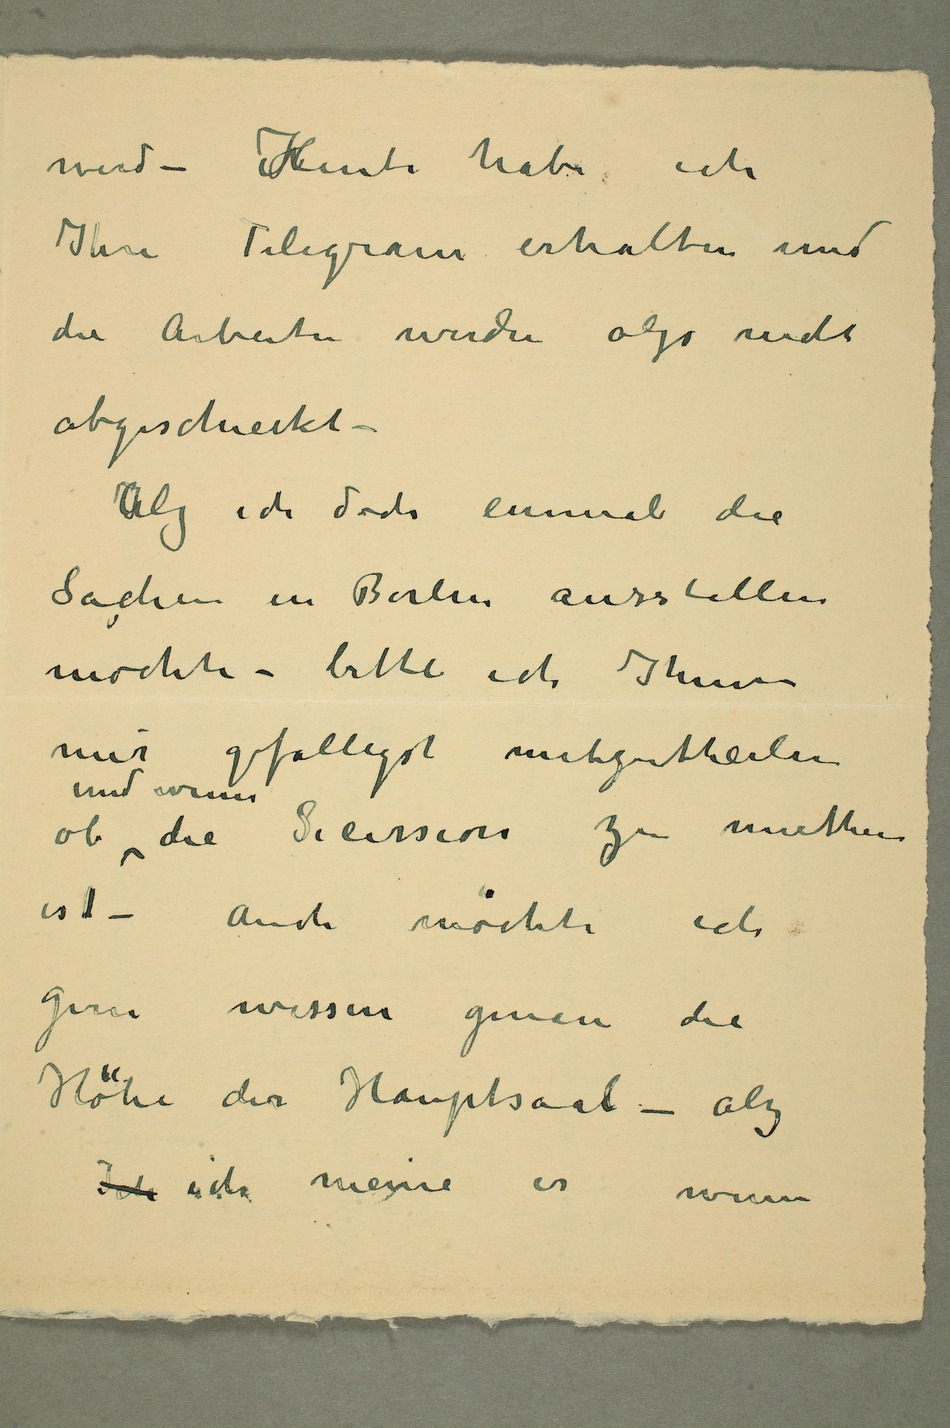 werd – Heute habe ich
Ihre Telegram erhalten und
die Arbeiten werden algo nicht
abgeschickt –
Alg ich doch einmal die
Sachen in Berlin ausstellen
mochte – bitte ich Ihnen
mir gefalligst mitzutheilen
und wenn
ob die Secession zu miethen
ist – Auch möchte ich
gern wissen genau die
Höhe der Hauptsaal – alg
Ich ich meine es wenn